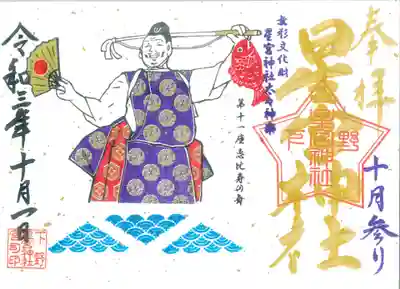 奉拝
十月参り
星宮神社
下野
星宮神社
無形文化財
星宮神社太々神楽
第十一座恵比寿の舞
令和三年十月一日
下野
星宮神社
宮司印